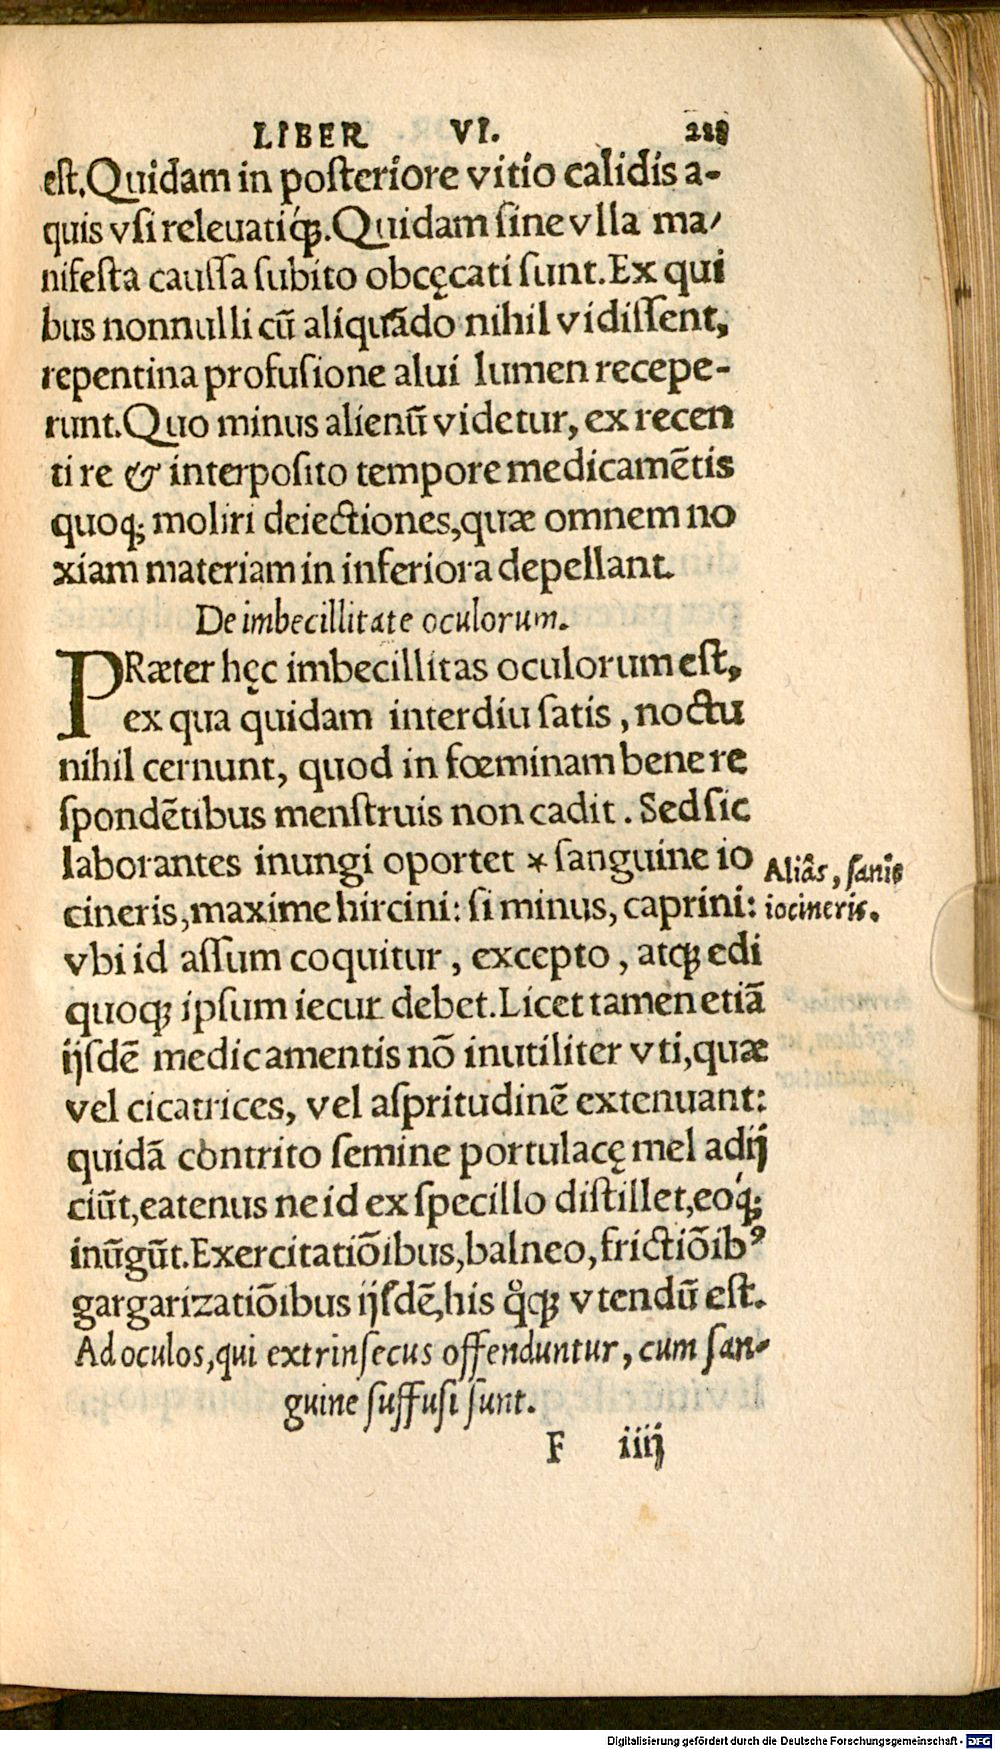 LIBER VI. 228
est. Quidam in posteriore vitio calidis a-
quis vsi releuatiq́ꝫ. Quidam sine vlla ma/
nifesta caussa subito obcęcati sunt. Ex qui
bus nonnulli cū aliquãdo nihil vidissent,
repentina profusione alui lumen recepe-
runt. Quo minus alienũ videtur, ex recen
ti re & interposito tempore medicamẽtis
quoq; moliri deiectiones, quæ omnem no
xiam materiam in inferiora depellant.
De imbecillitate oculorum.
PRæter hęc imbecillitas oculorum est,
ex qua quidam interdiu satis, noctu
nihil cernunt, quod in fœminam bene re
spondẽtibus menstruis non cadit. Sed sic
laborantes inungi oportet * sanguine io
Aliâs, sanie
cineris, maxime hircini: si minus, caprini:
iocineris.
vbi id assum coquitur, excepto, atqꝫ edi
quoqꝫ ipsum iecur debet. Licet tamen etiã
ijsdẽ medicamentis nõ inutiliter vti, quæ
vel cicatrices, vel aspritudinẽ extenuant:
quidã contrito semine portulacę mel adij
ciũt, eatenus ne id ex specillo distillet, eoq́;
inũgũt. Exercitatiõibus, balneo, frictiõibꝰ
gargarizatiõibus ijsdẽ, his qͦqꝫ vtendũ est.
Ad oculos, qui extrinsecus offenduntur, cum san-
guine suffusi sunt.
F iiij
Digitalisierung gefördert durch die Deutsche Forschungsgemeinschaft - DFG